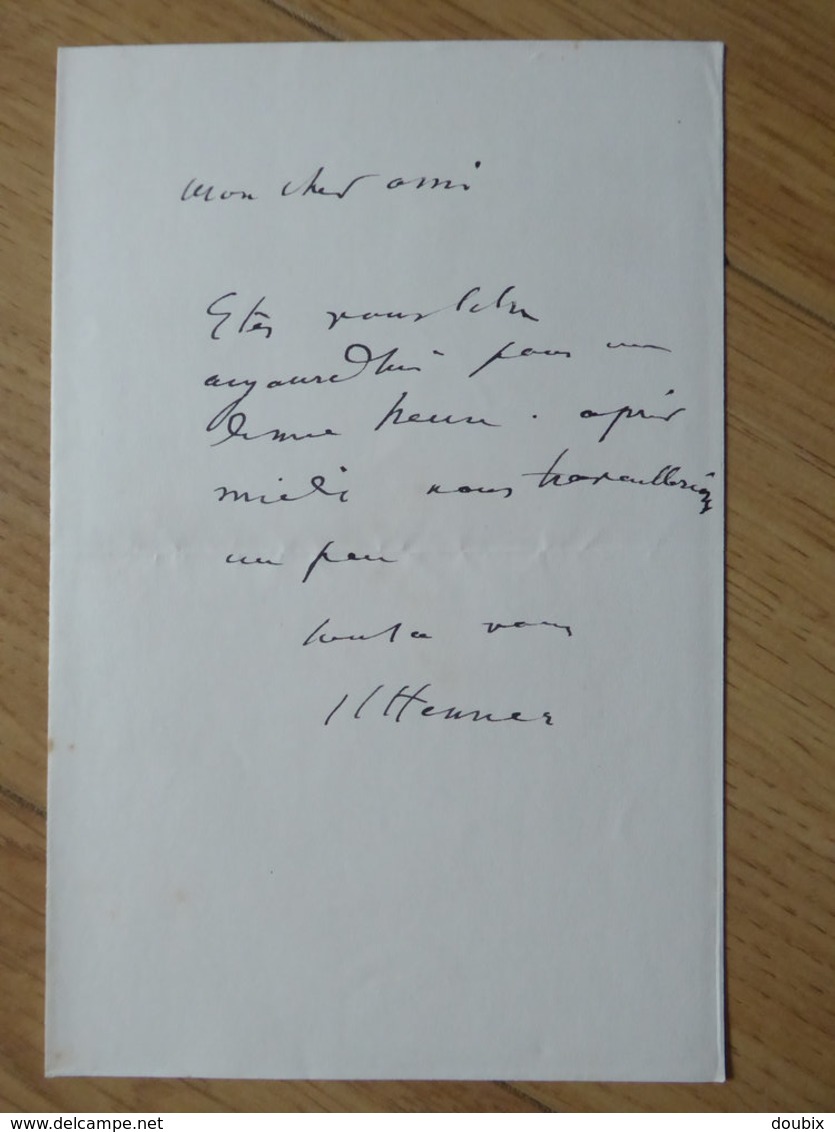 Mon cher ami
Etes vous libre
aujourd'hui pour un
demie heure . après
midi nous travaillerions
un peu
tout a vous
JJ Henner
www.delcampe.net
doubix